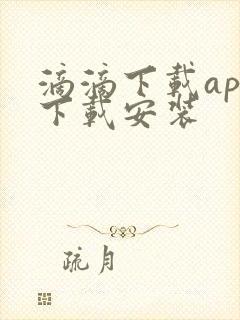 滴滴下载ap
下载安装
疏月